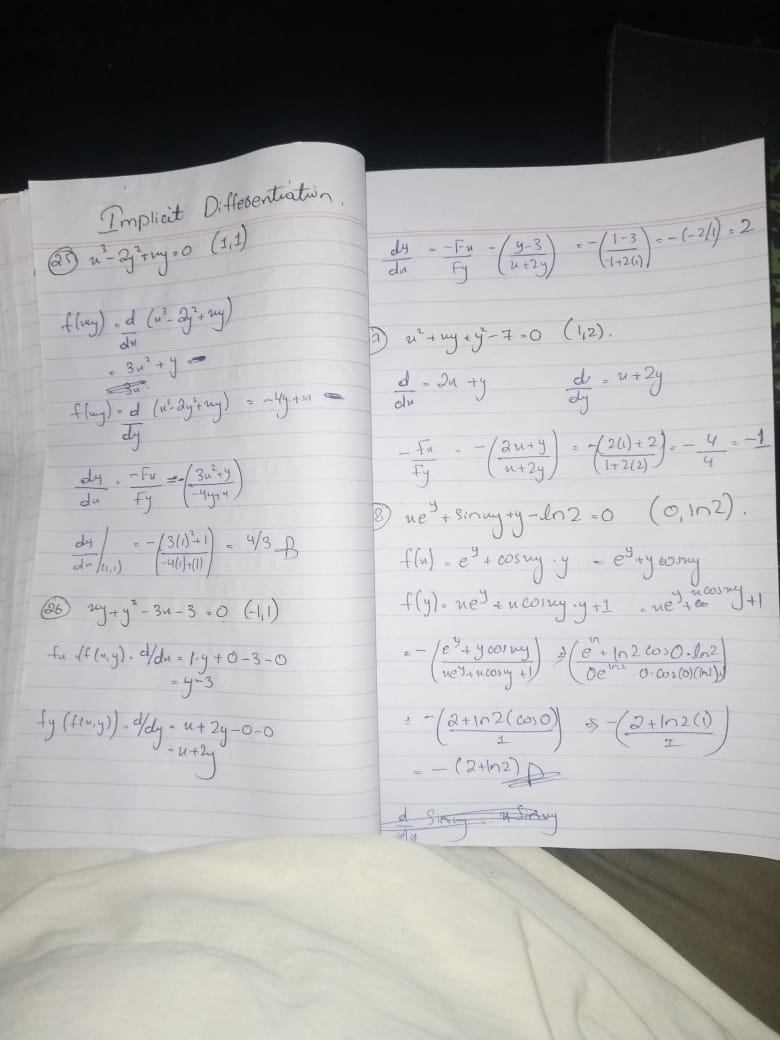 Implicit Differentiation.
25 x³ - 2y² + xy = 0 (1,1)
f(xy) = d/dx (x³ - 2y² + xy)
= 3x² + y
f(xy) = d/dy (x³ - 2y² + xy) = -4y + x
dy/dx = -Fx/Fy = -(3x² + y / -4y + x)
dy/dx |(1,1) = -(3(1)² + 1 / -4(1) + (1)) = 4/3
26 xy + y² - 3x - 3 = 0 (-1,1)
fx (f(x,y)) = d/dx = 1·y + 0 - 3 - 0
= y - 3
fy (f(x,y)) = d/dy = x + 2y - 0 - 0
= x + 2y
dy/dx = -Fx/Fy = -(y - 3 / x + 2y) = -(1 - 3 / -1 + 2(1)) = -(-2/1) = 2
7 x² + xy + y² - 7 = 0 (1,2).
d/dx = 2x + y d/dy = x + 2y
-Fx/Fy = -(2x + y / x + 2y) = -(2(1) + 2 / 1 + 2(2)) = -4/4 = -1
8 xe^y + sinxy + y - ln2 = 0 (0, ln2).
f(x) = e^y + cosxy · y = e^y + y cosxy
f(y) = xe^y + x cosxy · y + 1 = xe^y + x cosxy + 1
= -(e^y + y cosxy / xe^y + x cosxy + 1) ⇒ (e^ln + ln2 cos0 · ln2 / 0e^ln2 · 0 · cos(0)(ln2)
= -(2 + ln2 (cos0) / 1) ⇒ -(2 + ln2 (1) / 1)
= -(2 + ln2)
d/dy Sinxy = x Sinxy